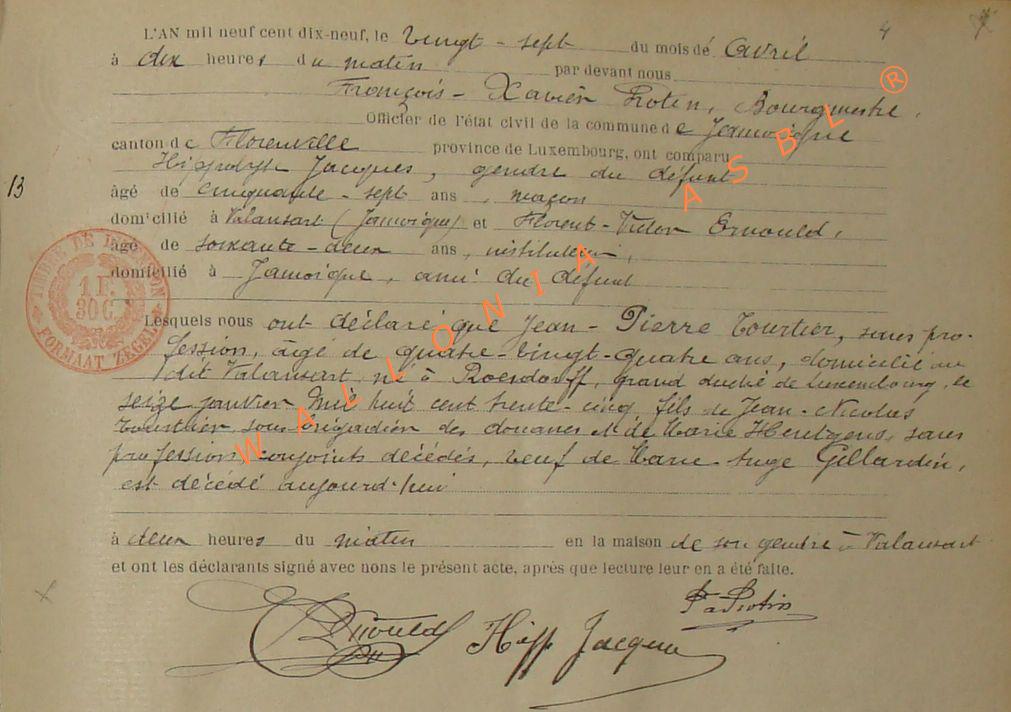 4
L'AN mil neuf cent dix-neuf, le vingt-sept du mois de Avril
à dix heures du matin par devant nous
François-Xavier Protin, Bourgmestre,
Officier de l'état civil de la commune de Jamoigne
canton de Florenville province de Luxembourg, ont comparu
Hippolyte Jacques, gendre du défunt
13
âgé de cinquante-sept ans, maçon
domicilié à Valansart (Jamoigne) et Florent-Victor Ernould,
âgé de soixante-deux ans, instituteur,
domicilié à Jamoigne, ami du défunt
TIMBRE DE DIMENSION
1 F. 30 C.
FORMAAT ZEGEL
Lesquels nous ont déclaré que Jean-Pierre Tourtier, sans pro-
fession, âgé de quatre-vingt-quatre ans, domicilié au
dit Valansart, né à Roesdorff, grand duché de Luxembourg, le
seize janvier mil huit cent trente-cinq, fils de Jean-Nicolas
Tourtier sous brigadier des douanes et de Marie Hentgens, sans
profession conjoints décédés, veuf de Marie-Ange Gillardin,
est décédé aujourd'hui
à deux heures du matin en la maison de son gendre à Valansart
et ont les déclarants signé avec nous le présent acte, après que lecture leur en a été faite.
Ernould Hipp Jacques Protin
WALLONIA ASBL ®